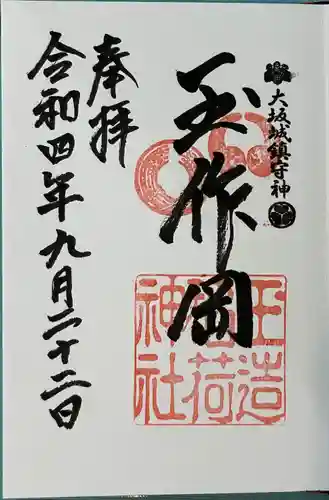 大坂城鎮守神
玉作岡
玉造稲荷神社
奉拝
令和四年九月二十二日